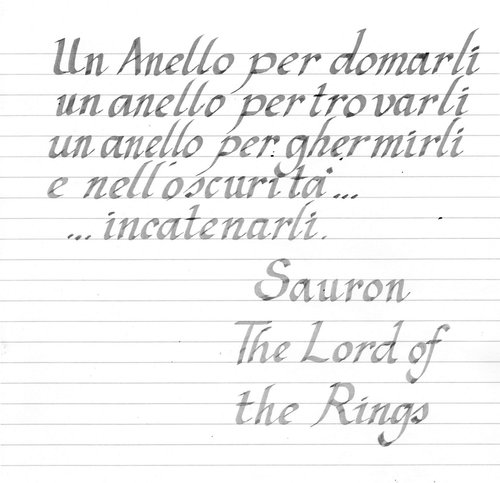 Un Anello per domarli
un anello per trovarli
un anello per ghermirli
e nell'oscurità...
...incatenarli.
Sauron
The Lord of
the Rings